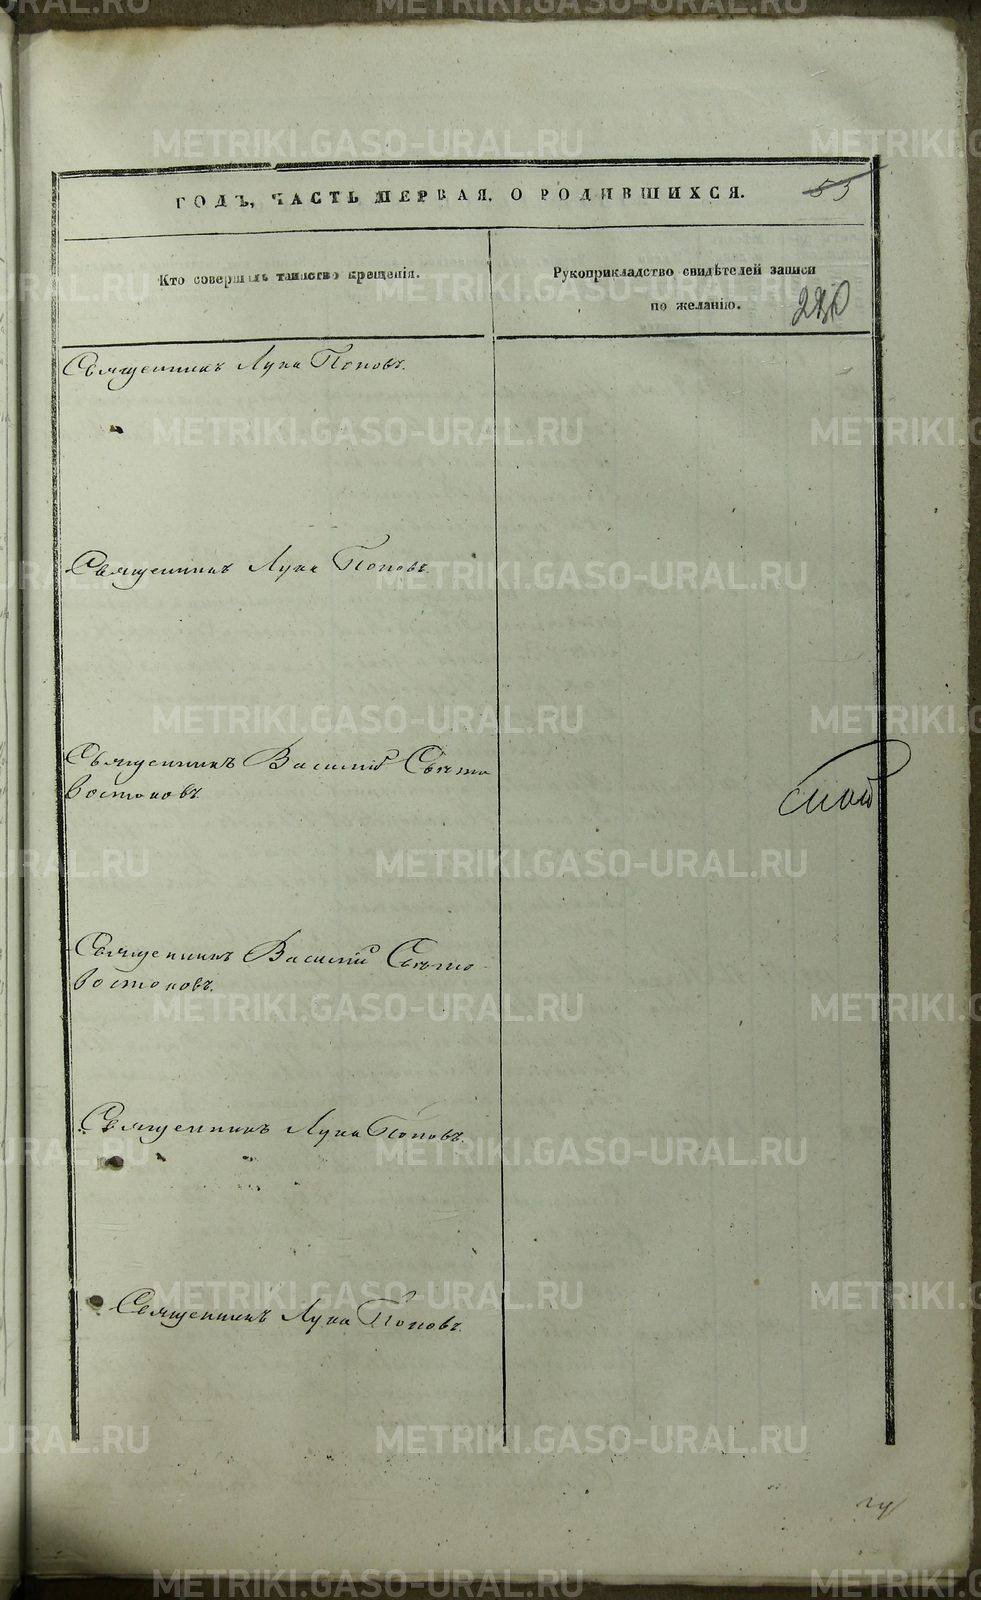 ГОДЪ, ЧАСТЬ ПЕРВАЯ, О РОДИВШИХСЯ.
53
Кто совершалъ таинство крещенія.
Рукоприкладство свидѣтелей записи
по желанію.
Священникъ Лука Поповъ.
Священникъ Лука Поповъ.
Священникъ Василій Свѣто
востоковъ.
Священникъ Василій Свѣто
востоковъ.
Священникъ Лука Поповъ.
Священникъ Лука Поповъ.
METRIKI.GASO-URAL.RU